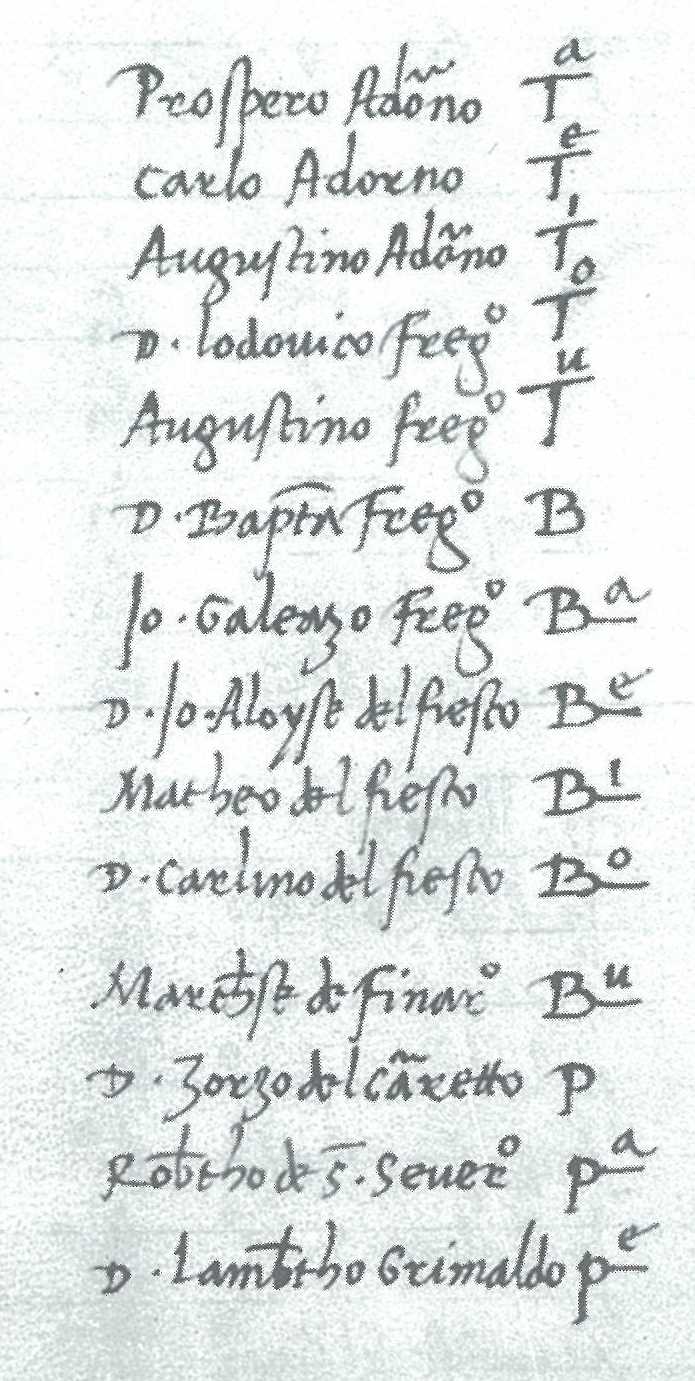 Prospero Adorno Tᵃ
Carlo Adorno Tᵉ
Augustino Adorno Tⁱ
D. lodouico Fregº Tº
Augustino fregº Tᵘ
D. Bapta Fregº B
Jo. Galeazo Fregº Bᵃ
D. Jo. Aloyse del fiesco Bᵉ
Matheo del fiesco Bⁱ
D. Carlino del fiesco Bº
Marchese de Finarº Bᵘ
D. Zorzo del carretto P
Robtho de S. Seuerº pᵃ
D. Lambtho Grimaldo pᵉ